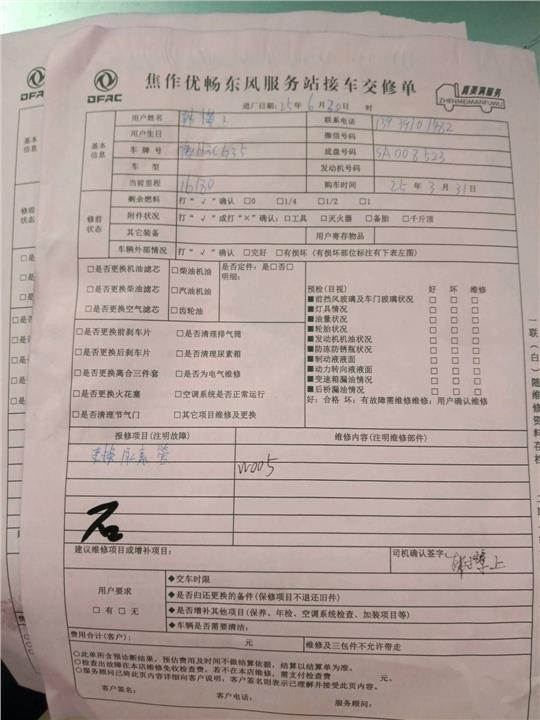 DFAC
焦作优畅东风服务站接车交修单
真美满服务
ZHENMEIMANFUWU
进厂日期：25年6月30日 时
基本信息
用户姓名 联系电话
用户生日 微信号码
车牌号 底盘号码 SA008523
车型 发动机号码
当前里程 16180 购车时间 25年3月31日
修前状态
剩余燃料 打“√”确认 □0 □1/4 □1/2 □1
附件状况 打“√”或打“×”确认：□工具 □灭火器 □备胎 □千斤顶
其它装备 用户寄存物品
车辆外部情况 打“√”确认 □完好 □有损坏（有损坏部位标注有下表左图）
□是否更换机油滤芯 □柴油机油 是否定件：是□否□
明细：
□是否更换柴油滤芯 □汽油机油
□是否更换空气滤芯 □齿轮油
□是否更换前刹车片 □是否清理排气筒
□是否更换后刹车片 □是否清理尿素箱
□是否更换离合三件套 □是否为电气维修
□是否更换火花塞 □空调系统是否正常运行
□是否清理节气门 □其它项目维修及更换
预检(目视) 好 坏 维修
■前挡风玻璃及车门玻璃状况 □ □ □
■灯具情况 □ □ □
■油量状况 □ □ □
■轮胎状况 □ □ □
■发动机机油状况 □ □ □
■防冻防锈瓶状况 □ □ □
■制动液液面 □ □ □
■动力转向液液面 □ □ □
■变速箱漏油情况 □ □ □
■后桥漏油情况 □ □ □
好：合格 坏：有故障需维修维修：用户确认维修
报修项目(注明故障) 维修内容(注明维修部件)
更换尿素管 W005
建议维修项目或增补项目：
司机确认签字：
用户要求
□有 □无
◆交车时限
◆是否归还更换的备件(保修项目不退还旧件)
◆是否增补其他项目(保养、年检、空调系统检查、加装项目等)
◆车辆是否需要清洁：
费用合计(客户)： 元 维修及三包件不允许带走
○此单所含预诊断结果，预估费用及时间不做结算依据，结算以结算单为准。
○检查出故障在本店维修免收检查费，若不在本店维修，需支付检查费 元。
○服务顾问已将此页内容详细向客户说明，客户签名则表示已理解并接受此页内容。
客户签名： 客户电话： 服务顾问：
一联(白)随维修资料存档